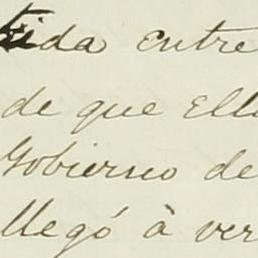 tida entre
de que ella
Gobierno de
llegó à ver